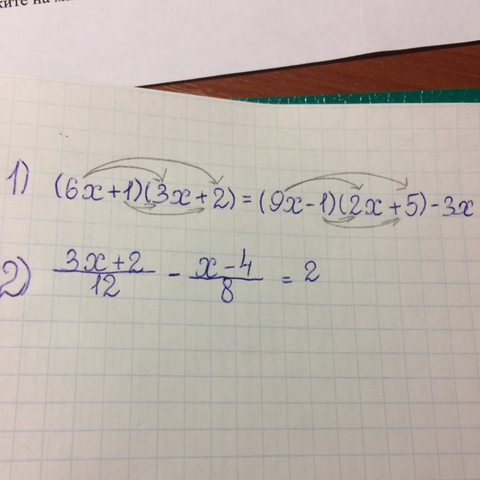 1) (6x+1)(3x+2)=(9x-1)(2x+5)-3x
2) (3x+2)/12 - (x-4)/8 = 2